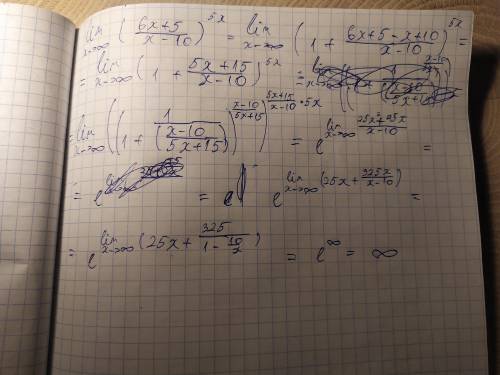 lim x→∞ ( (6x+5)/(x-10) )^5x = lim x→∞ ( 1 + (6x+5-x+10)/(x-10) )^5x =
= lim x→∞ ( 1 + (5x+15)/(x-10) )^5x =
= lim x→∞ ( ( 1 + 1/((x-10)/(5x+15)) )^((x-10)/(5x+15)) )^((5x+15)/(x-10) · 5x) = e^(lim x→∞ (25x²+75x)/(x-10)) =
= = e^(lim x→∞ (25x + 325x/(x-10))) =
= e^(lim x→∞ (25x + 325/(1 - 10/x))) = e^∞ = ∞